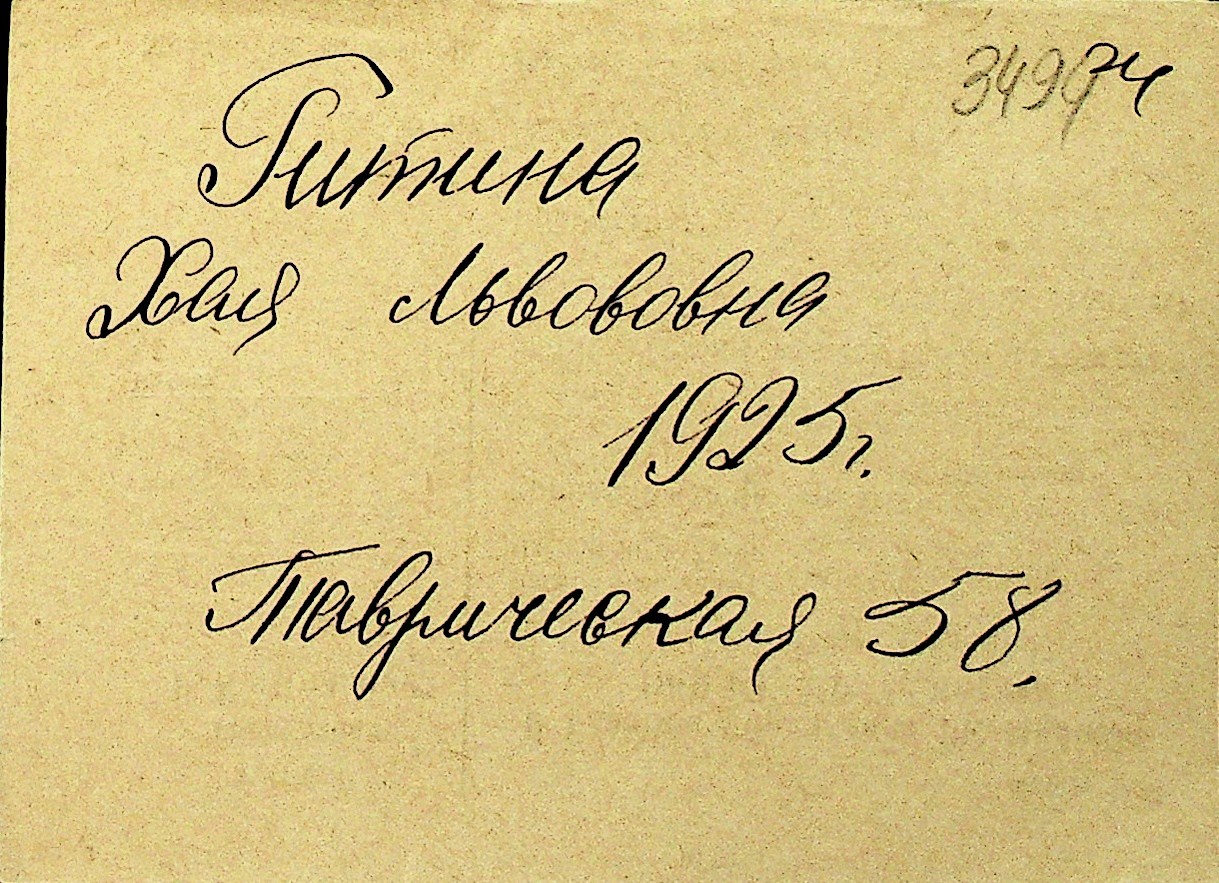 Ритина
Хая Львововна
1925г.
Таврическая 58.